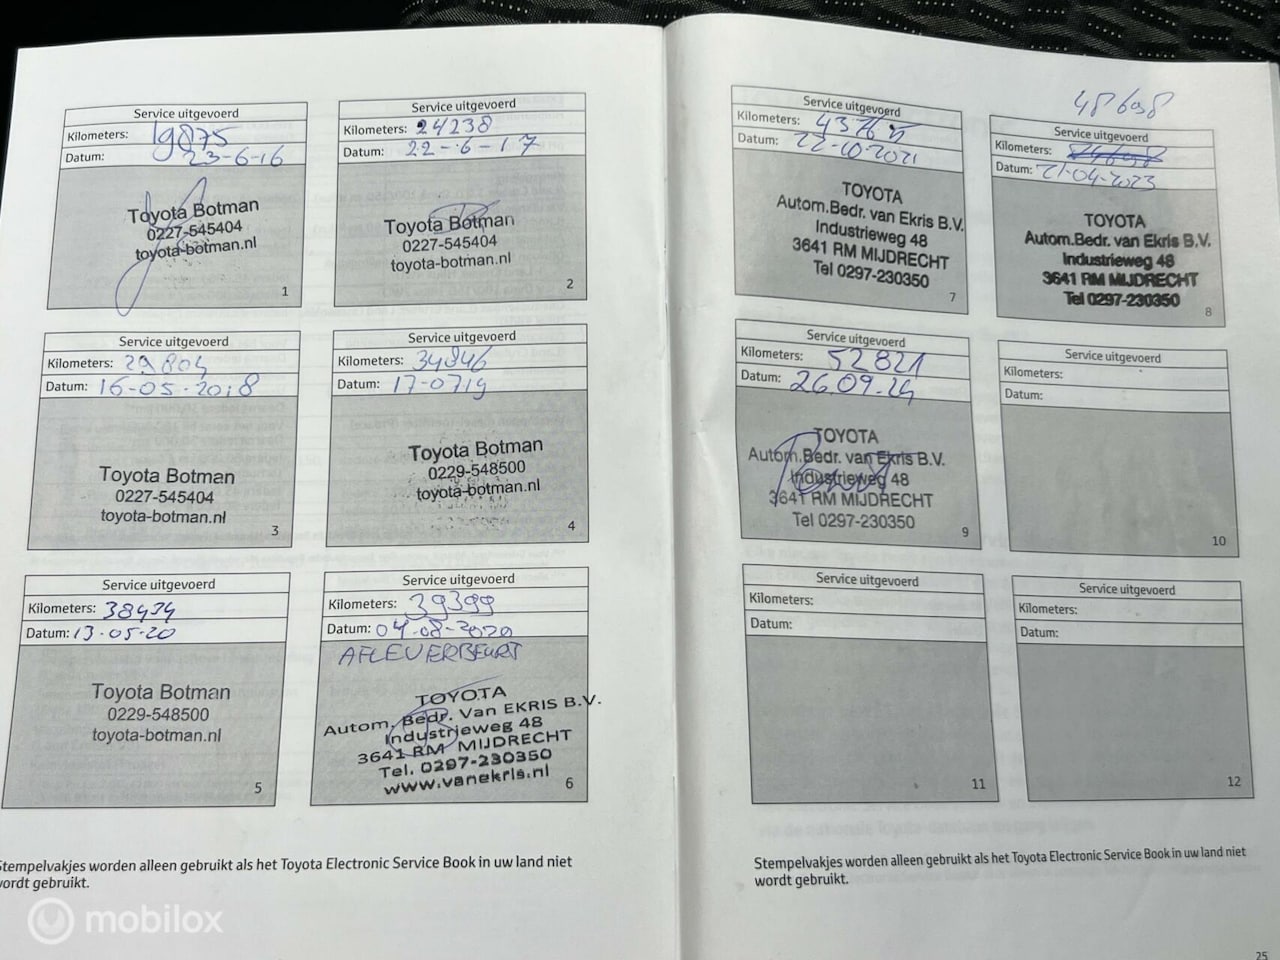 Service uitgevoerd
Kilometers: 19875
Datum: 23-6-16
Toyota Botman
0227-545404
toyota-botman.nl
1
Service uitgevoerd
Kilometers: 24238
Datum: 22-6-17
Toyota Botman
0227-545404
toyota-botman.nl
2
Service uitgevoerd
Kilometers: 29804
Datum: 16-05-2018
Toyota Botman
0227-545404
toyota-botman.nl
3
Service uitgevoerd
Kilometers: 34846
Datum: 17-0719
Toyota Botman
0229-548500
toyota-botman.nl
4
Service uitgevoerd
Kilometers: 38434
Datum: 13-05-20
Toyota Botman
0229-548500
toyota-botman.nl
5
Service uitgevoerd
Kilometers: 39399
Datum: 04-08-2020
AFLEVERBEURT
TOYOTA
Autom. Bedr. Van EKRIS B.V.
Industrieweg 48
3641 RM MIJDRECHT
Tel. 0297-230350
www.vanekris.nl
6
Stempelvakjes worden alleen gebruikt als het Toyota Electronic Service Book in uw land niet
wordt gebruikt.
Service uitgevoerd
Kilometers: 43765
Datum: 22-10-2021
TOYOTA
Autom.Bedr. van Ekris B.V.
Industrieweg 48
3641 RM MIJDRECHT
Tel 0297-230350
7
48698
Service uitgevoerd
Kilometers:
Datum: 21-04-2023
TOYOTA
Autom.Bedr. van Ekris B.V.
Industrieweg 48
3641 RM MIJDRECHT
Tel 0297-230350
8
Service uitgevoerd
Kilometers: 52821
Datum: 26.09.24
TOYOTA
Autom.Bedr. van Ekris B.V.
Industrieweg 48
3641 RM MIJDRECHT
Tel 0297-230350
9
Service uitgevoerd
Kilometers:
Datum:
10
Service uitgevoerd
Kilometers:
Datum:
11
Service uitgevoerd
Kilometers:
Datum:
12
Stempelvakjes worden alleen gebruikt als het Toyota Electronic Service Book in uw land niet
wordt gebruikt.
25
mobilox